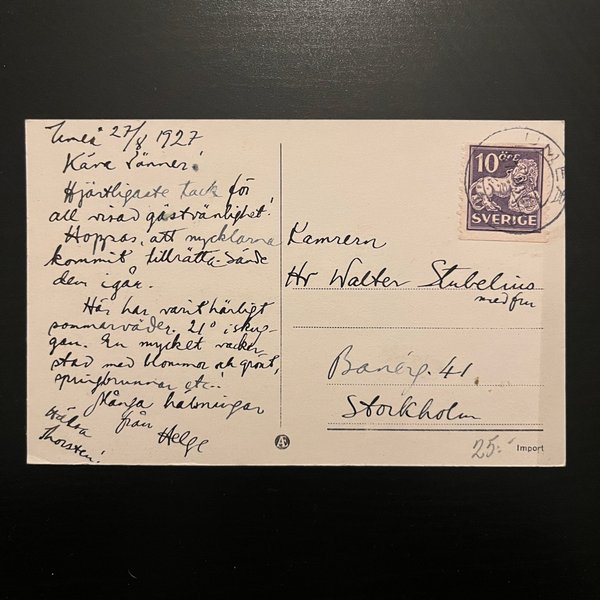 Umeå 27/8 1927
Käre vänner!
Hjärtligaste tack för
all visad gästvänlighet!
Hoppas, att nycklarna
kommit tillrätta. Sände
dem igår.
Här har varit härligt
sommarväder. 21° i skug-
gan. En mycket vacker
stad med blommor och grönt,
springbrunnar etc.
Många hälsningar
från
Helge
Hälsa
Thorsten!
10 ÖRE
SVERIGE
UME
Kamrern
Hr Walter Stubelius
med fru
Banérg. 41
Stockholm
25:-
Import